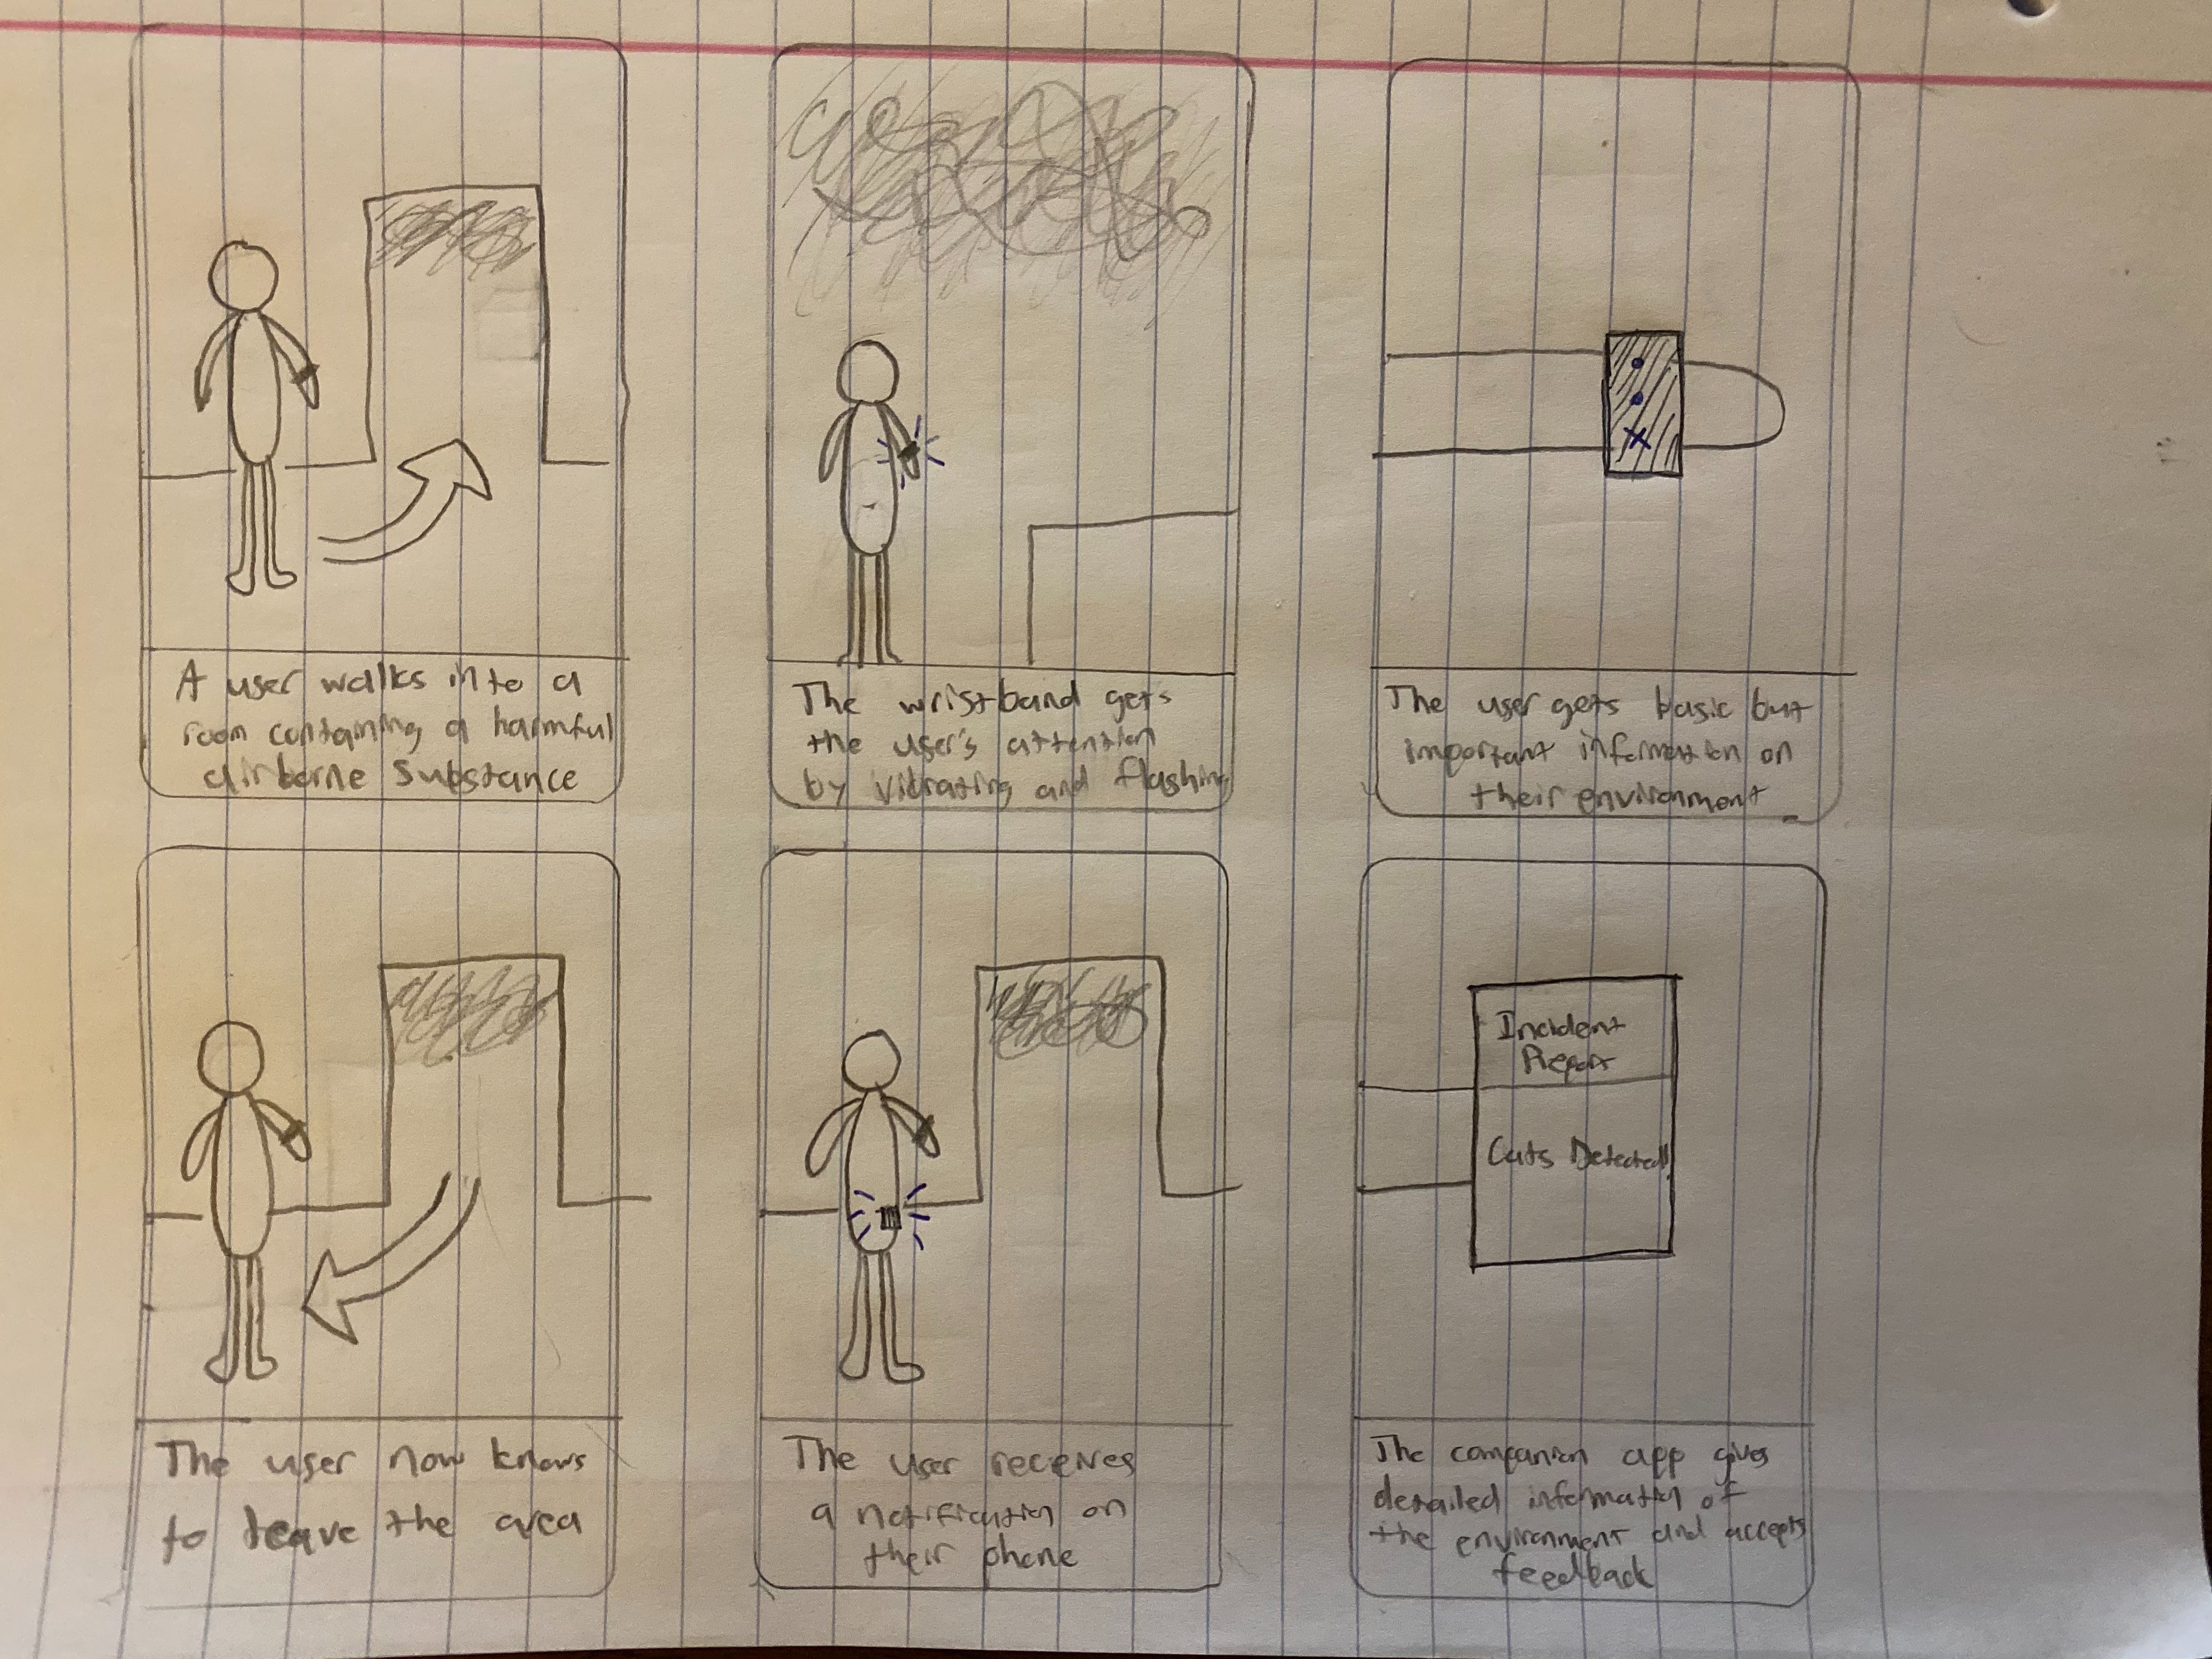 A user walks into a
room containing a harmful
airborne substance
The wristband gets
the user's attention
by vibrating and flashing
The user gets basic but
important information on
their environment
The user now knows
to leave the area
The user receives
a notification on
their phone
Incident
Report
Cats Detected!
The companion app gives
detailed information of
the environment and accepts
feedback